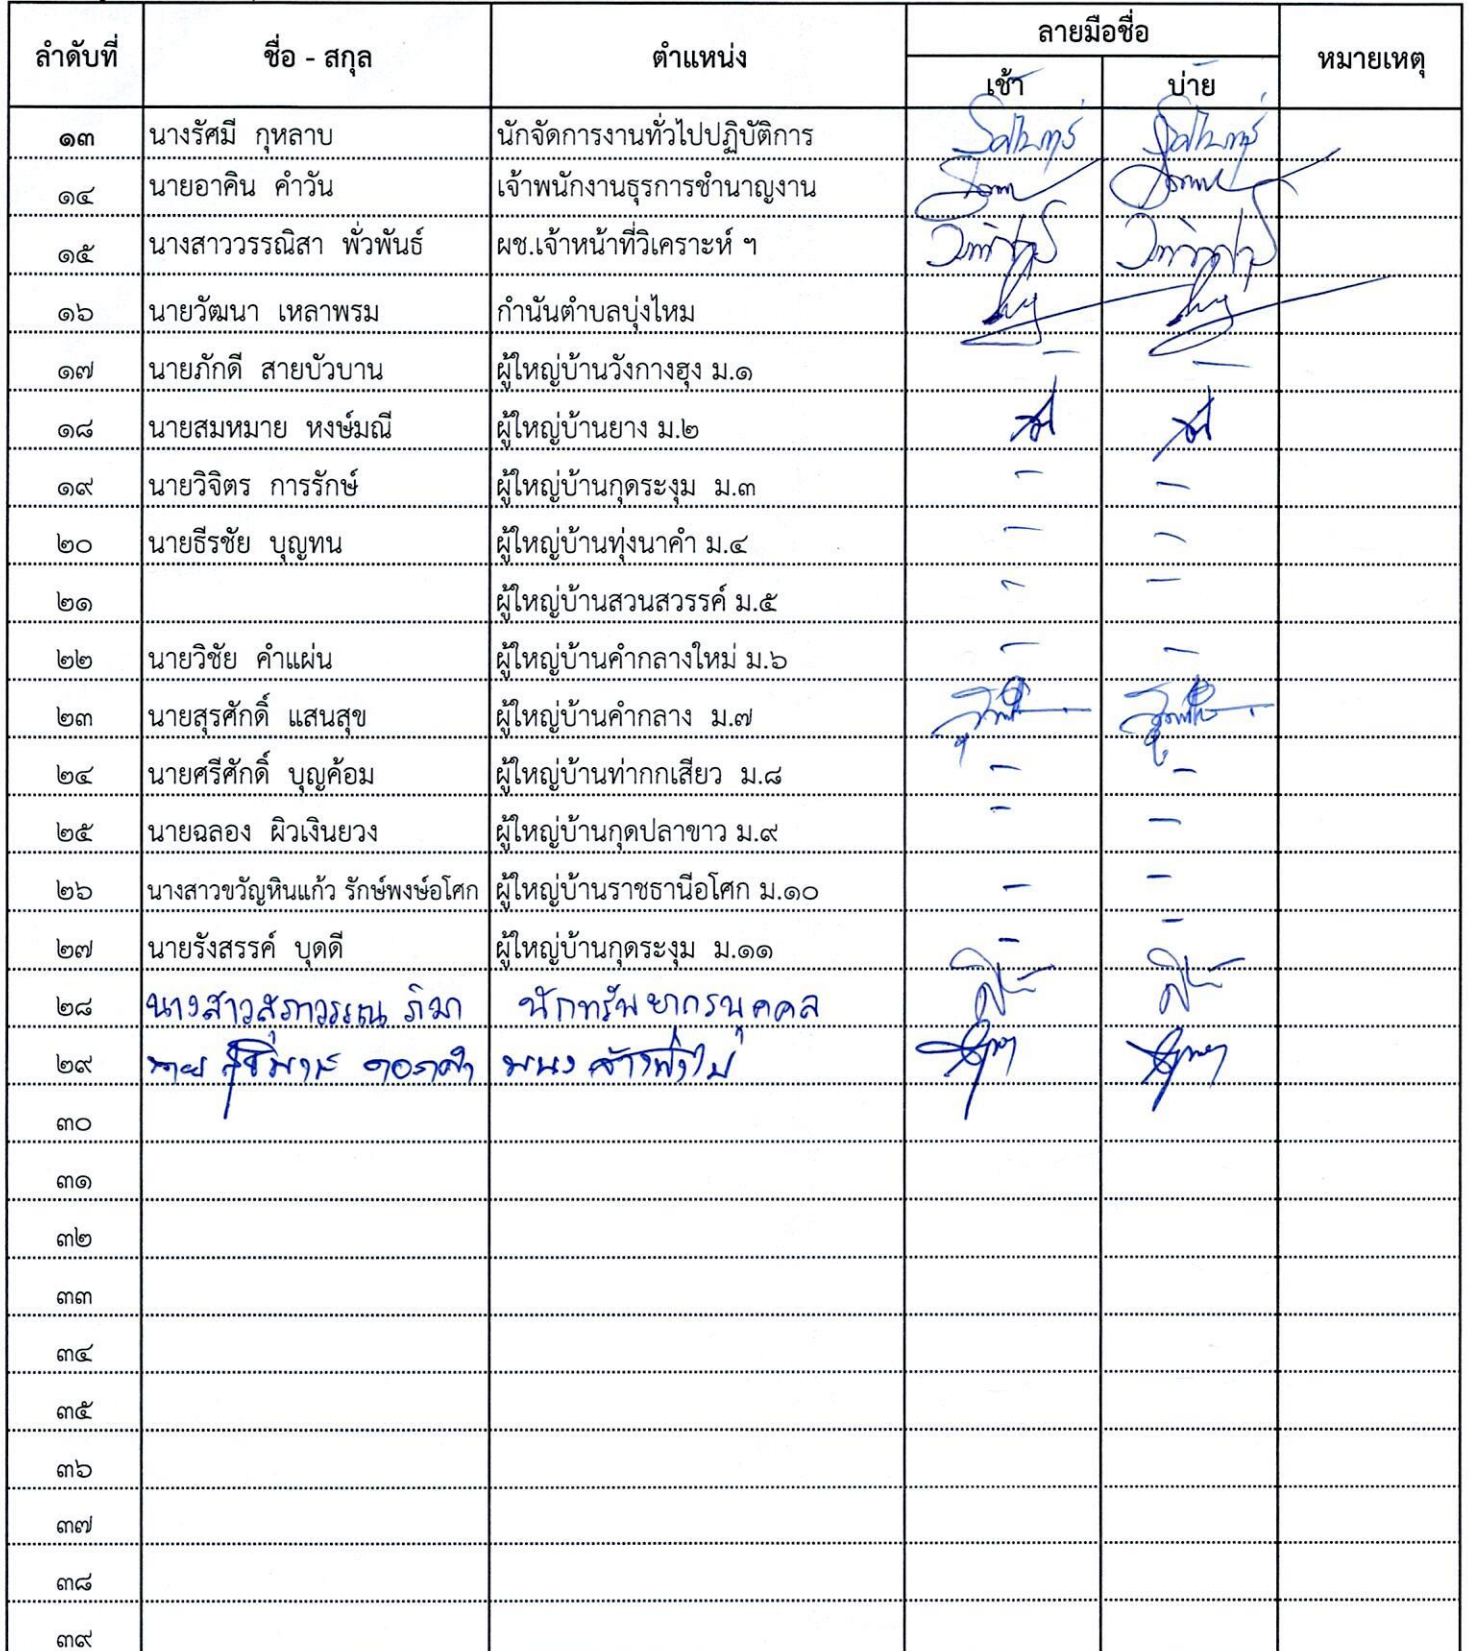 ลำดับที่ ชื่อ - สกุล ตำแหน่ง ลายมือชื่อ หมายเหตุ
เช้า บ่าย
๑๓ นางรัศมี กุหลาบ นักจัดการงานทั่วไปปฏิบัติการ
๑๔ นายอาคิน คำวัน เจ้าพนักงานธุรการชำนาญงาน
๑๕ นางสาววรรณิสา พั่วพันธ์ ผช.เจ้าหน้าที่วิเคราะห์ ฯ
๑๖ นายวัฒนา เหลาพรม กำนันตำบลบุ่งไหม
๑๗ นายภักดี สายบัวบาน ผู้ใหญ่บ้านวังกางฮุง ม.๑ - -
๑๘ นายสมหมาย หงษ์มณี ผู้ใหญ่บ้านยาง ม.๒
๑๙ นายวิจิตร การรักษ์ ผู้ใหญ่บ้านกุดระงุม ม.๓ - -
๒๐ นายธีรชัย บุญทน ผู้ใหญ่บ้านทุ่งนาคำ ม.๔ - -
๒๑ ผู้ใหญ่บ้านสวนสวรรค์ ม.๕ - -
๒๒ นายวิชัย คำแผ่น ผู้ใหญ่บ้านคำกลางใหม่ ม.๖ - -
๒๓ นายสุรศักดิ์ แสนสุข ผู้ใหญ่บ้านคำกลาง ม.๗
๒๔ นายศรีศักดิ์ บุญค้อม ผู้ใหญ่บ้านท่ากกเสียว ม.๘ - -
๒๕ นายฉลอง ผิวเงินยวง ผู้ใหญ่บ้านกุดปลาขาว ม.๙ - -
๒๖ นางสาวขวัญหินแก้ว รักษ์พงษ์อโศก ผู้ใหญ่บ้านราชธานีอโศก ม.๑๐ - -
๒๗ นายรังสรรค์ บุดดี ผู้ใหญ่บ้านกุดระงุม ม.๑๑ - -
๒๘ นางสาวสุภาวรรณ ภิมา นักทรัพยากรบุคคล
๒๙ นาย
๓๐
๓๑
๓๒
๓๓
๓๔
๓๕
๓๖
๓๗
๓๘
๓๙